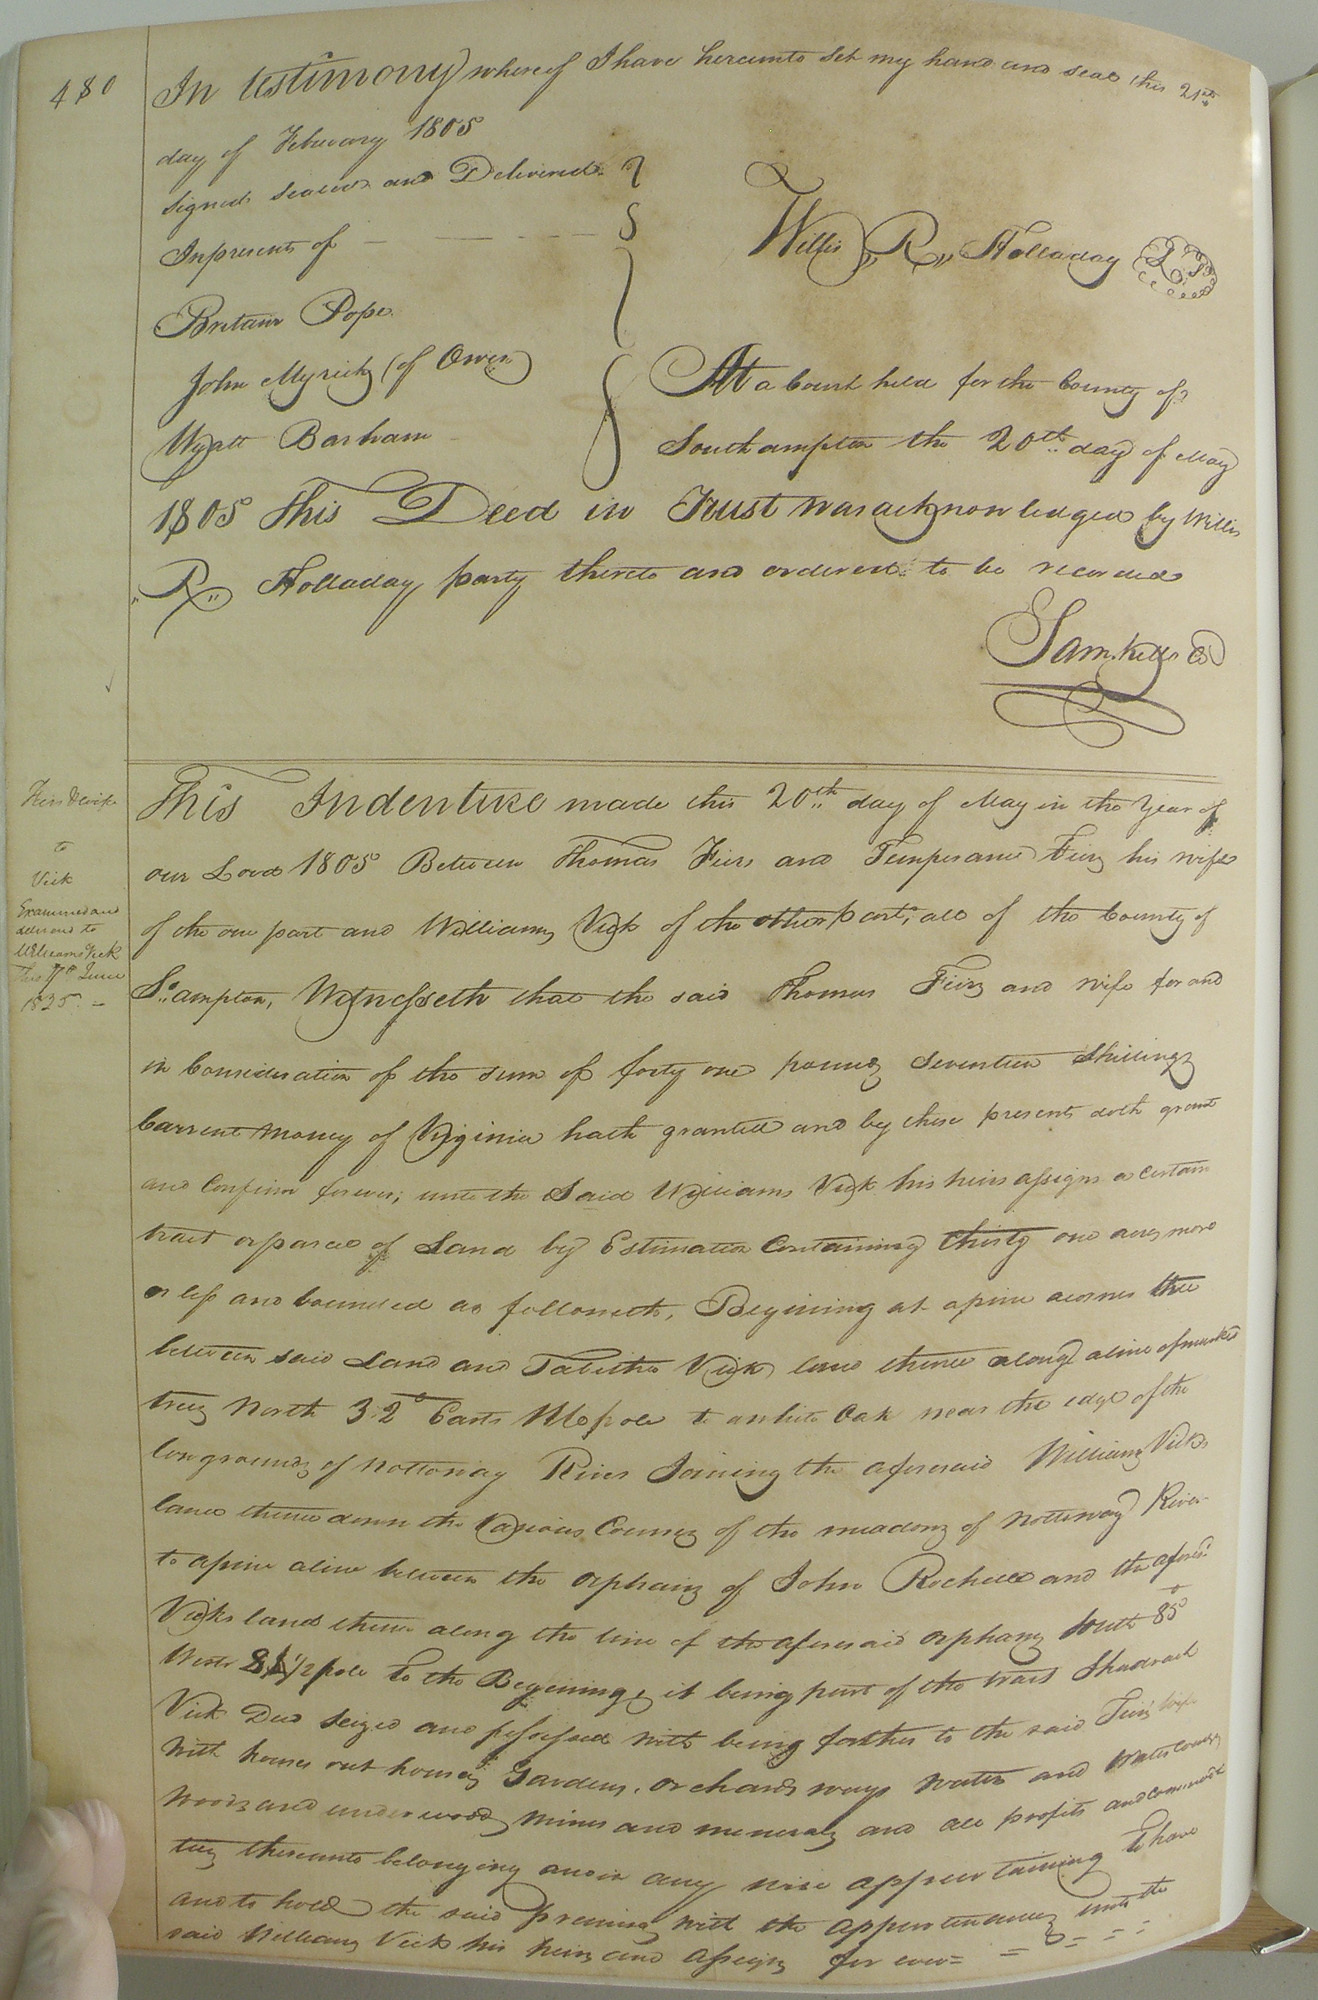 480
In testimony whereof I have hereunto set my hand and seal this 21st
day of February 1805
signed sealed and Delivered
In presents of
Willis R Holladay
Britain Pope
John Myrick (of Owen)
Wyatt Barham
At a Court held for the County of
Southampton the 20th day of May
1805 This Deed in Trust was acknowledged by Willis
R Holladay party thereto and ordered to be recorded
Sam. Kello C
This Indenture made this 20th day of May in the Year of
our Lord 1805 Between Thomas and Temperance his wife
of the one part and Williams Vick of the other part, all of the County of
So.ampton, Witnesseth that the said Thomas and wife for and
in Consideration of the sum of forty one pounds Seventeen Shillings
Current Money of Virginia hath granted and by these presents doth grant
and Confirm forever, unto the Said Williams Vick his heirs assigns a certain
tract or parcel of Land by Estimation Containing thirty one acres more
or less and bounded as followeth, Begining at a pine a corner tree
between said Land and Tabitha Vick land thence along a line of marked
trees North 32° East pole to a white Oak near the edge of the
low grounds of Nottoway River Joining the aforesaid Williams Vicks
land thence down the Various Courses of the meadows of Nottoway River
to a pine a line between the orphans of John Rochell and the afores.d
Vicks land thence along the line of the aforesaid orphans South 85°
West 1/2 pole to the Begining, it being part of the tract Shadrach
Vick Decd seized and possessed with being father to the said wife
With houses out houses Gardens, orchards ways water and Watercourses
Woods and underwoods mines and minerals and all profits and commodi
ties thereunto belonging and in any wise appertaining To have
and to hold the said premises with the appurtenances unto the
said Williams Vick his heirs and assigns for ever =
& wife
to
Vick
Examined and
delivered to
Williams Vick
This 17th June
1835. –